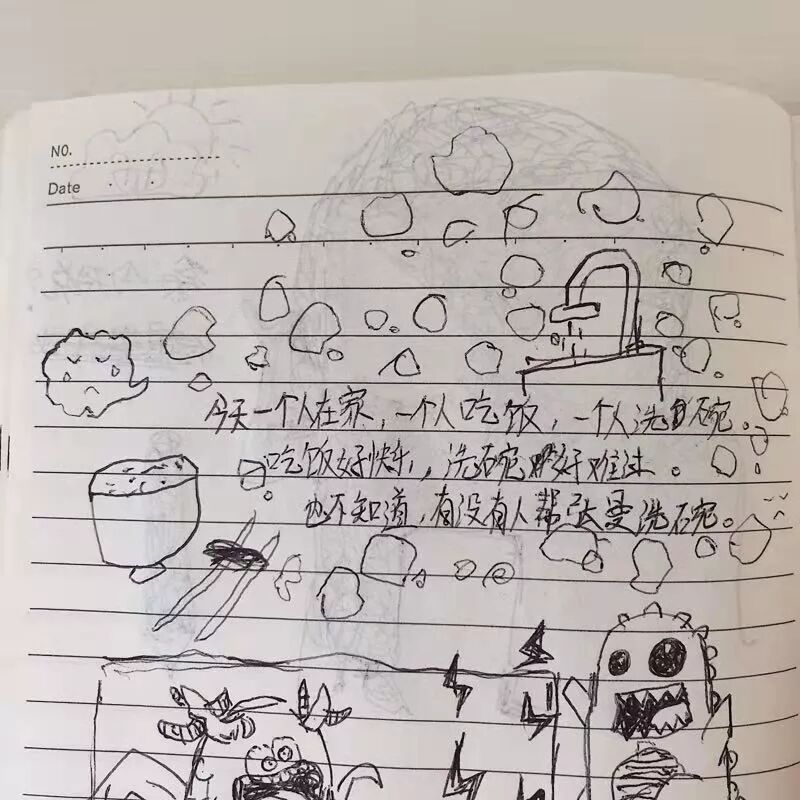 NO.
Date
今天一个人在家，一个人吃饭，一个人洗碗。
吃饭好快乐，洗碗好难过。
也不知道，有没有人帮张曼洗碗。